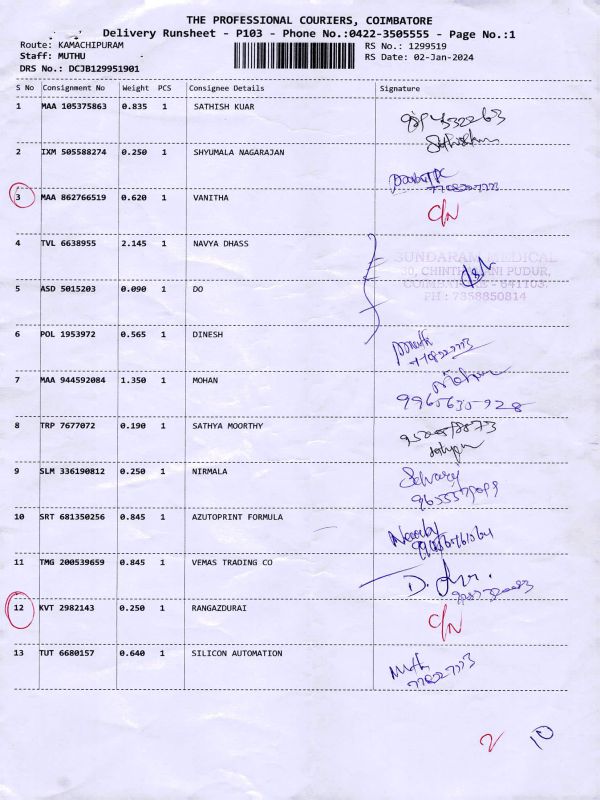 THE PROFESSIONAL COURIERS, COIMBATORE
Delivery Runsheet - P103 - Phone No.:0422-3505555 - Page No.:1
Route: KAMACHIPURAM RS No.: 1299519
Staff: MUTHU RS Date: 02-Jan-2024
DRS No.: DCJB129951901
S No Consignment No Weight PCS Consignee Details Signature
1 MAA 105375863 0.835 1 SATHISH KUAR
2 IXM 505588274 0.250 1 SHYUMALA NAGARAJAN
3 MAA 862766519 0.620 1 VANITHA C/N
4 TVL 6638955 2.145 1 NAVYA DHASS
SUNDARAM MEDICAL
PUDUR,
5 ASD 5015203 0.090 1 DO
COIMBATORE - 641103,
PH : 7358850814
6 POL 1953972 0.565 1 DINESH
7 MAA 944592084 1.350 1 MOHAN
9965635928
8 TRP 7677072 0.190 1 SATHYA MOORTHY
9 SLM 336190812 0.250 1 NIRMALA
10 SRT 681350256 0.845 1 AZUTOPRINT FORMULA
11 TMG 200539659 0.845 1 VEMAS TRADING CO
12 KVT 2982143 0.250 1 RANGAZDURAI C/N
13 TUT 6680157 0.640 1 SILICON AUTOMATION
2 10